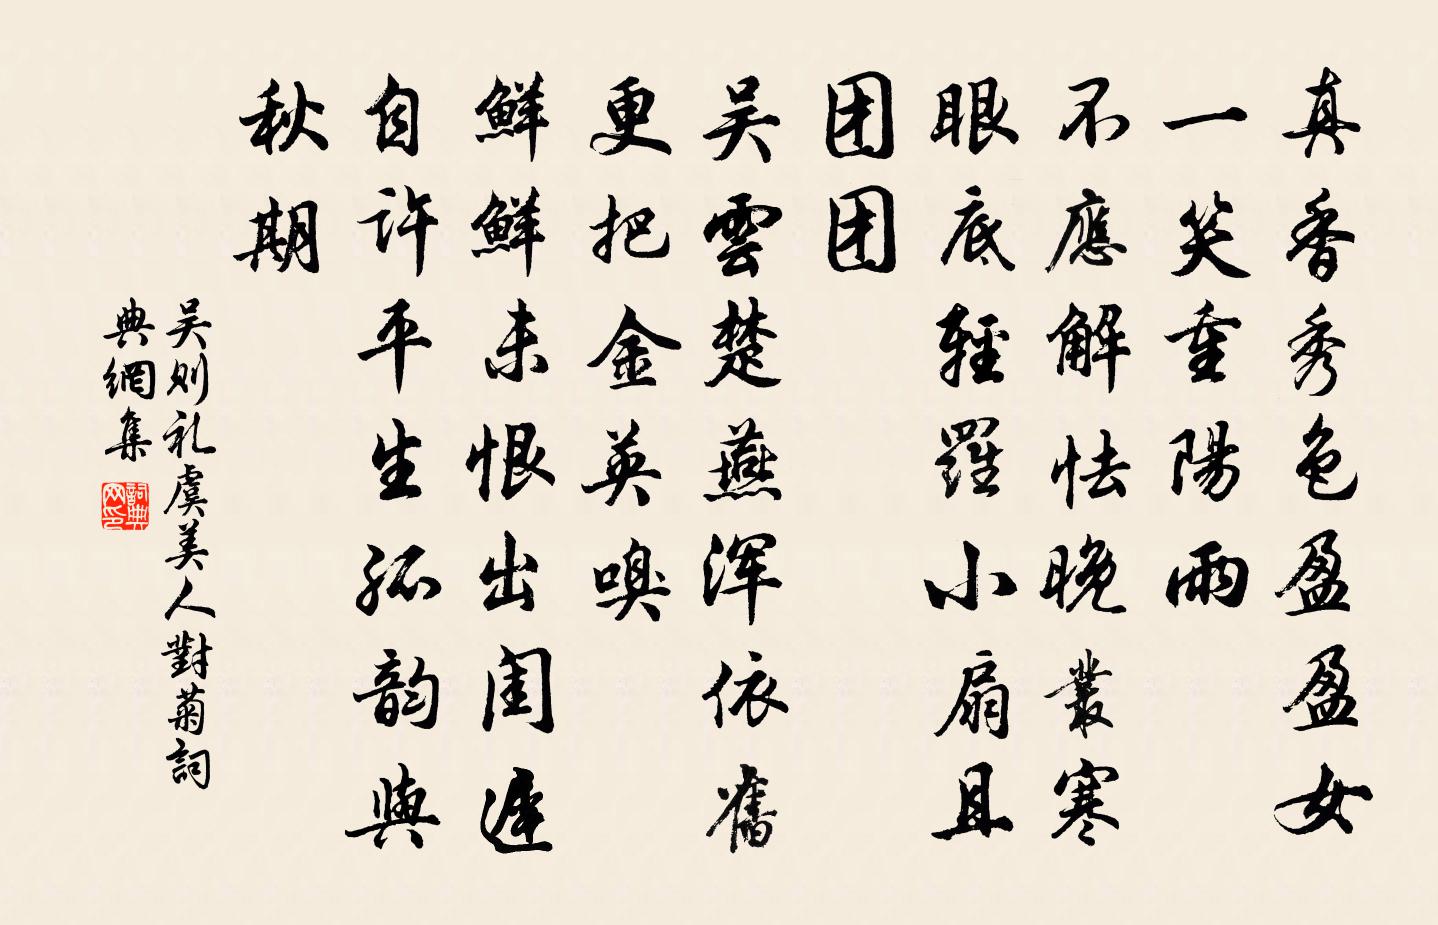 真香秀色盈盈女
一笑重陽雨
不應解怯晚叢寒
眼底輕羅小扇且
团团
吴雲楚燕浑依舊
更把金英嗅
鮮鮮未恨出閨遲
自许平生孤韵與
秋期
吴则礼虞美人對菊詞
典網集
詞典
网印